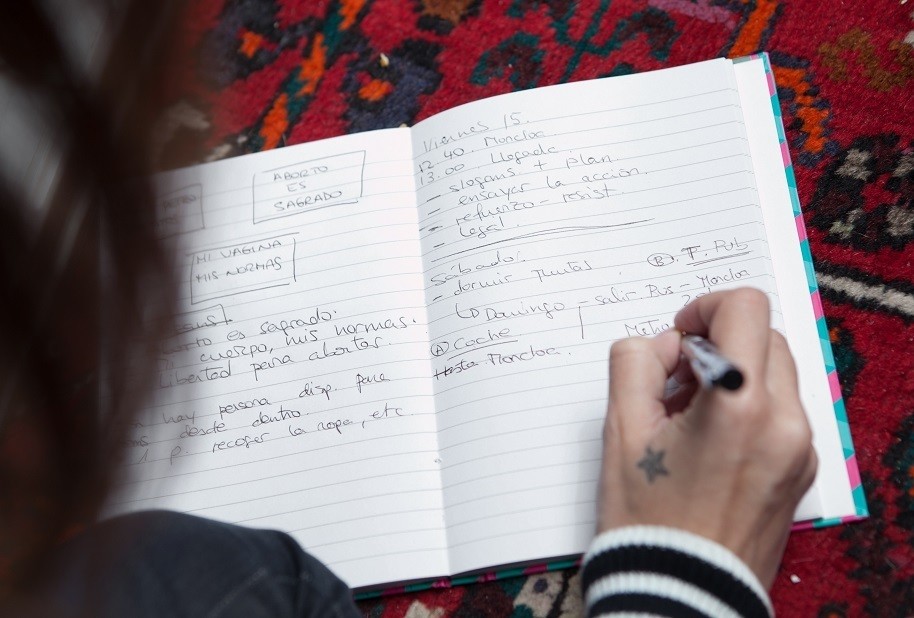 ABORTO
ES
SAGRADO
MI VAGINA
MIS NORMAS
es sagrado.
cuerpo, mis normas.
Libertad para abortar.
hay persona disp. para
desde dentro.
recoger la ropa, etc
Viernes 15.
12.40. Moncloa
13.00 Llegada
- slogans + plan
- ensayar la acción.
- refuerzo - resist.
- Legal.
Sábado:
- dormir juntas.
↳ Domingo - salir Bus - Moncloa
Ⓑ. T. Pub
Ⓐ Coche
Hasta Moncloa.